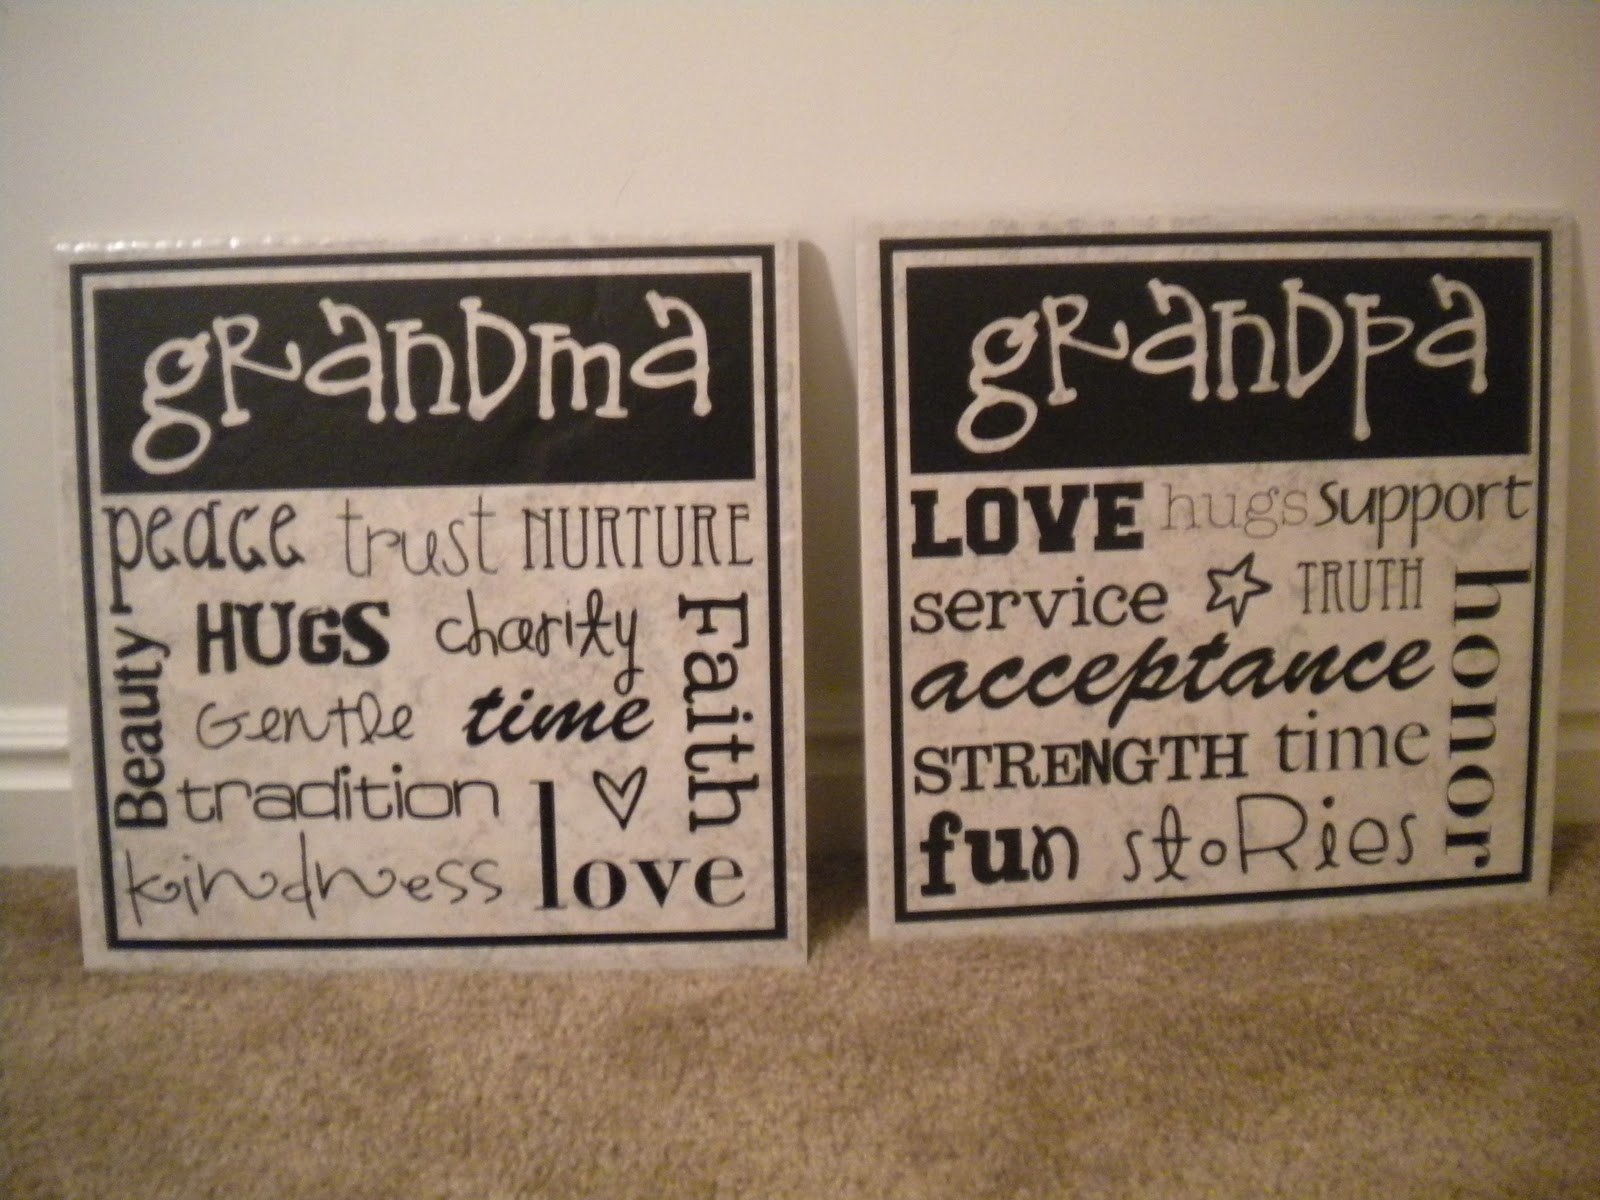 grandma
peace trust NURTURE
Beauty
HUGS charity
Gentle time
Faith
tradition
kindness love
grandpa
LOVE hugs support
service TRUTH
honor
acceptance
STRENGTH time
fun stoRies